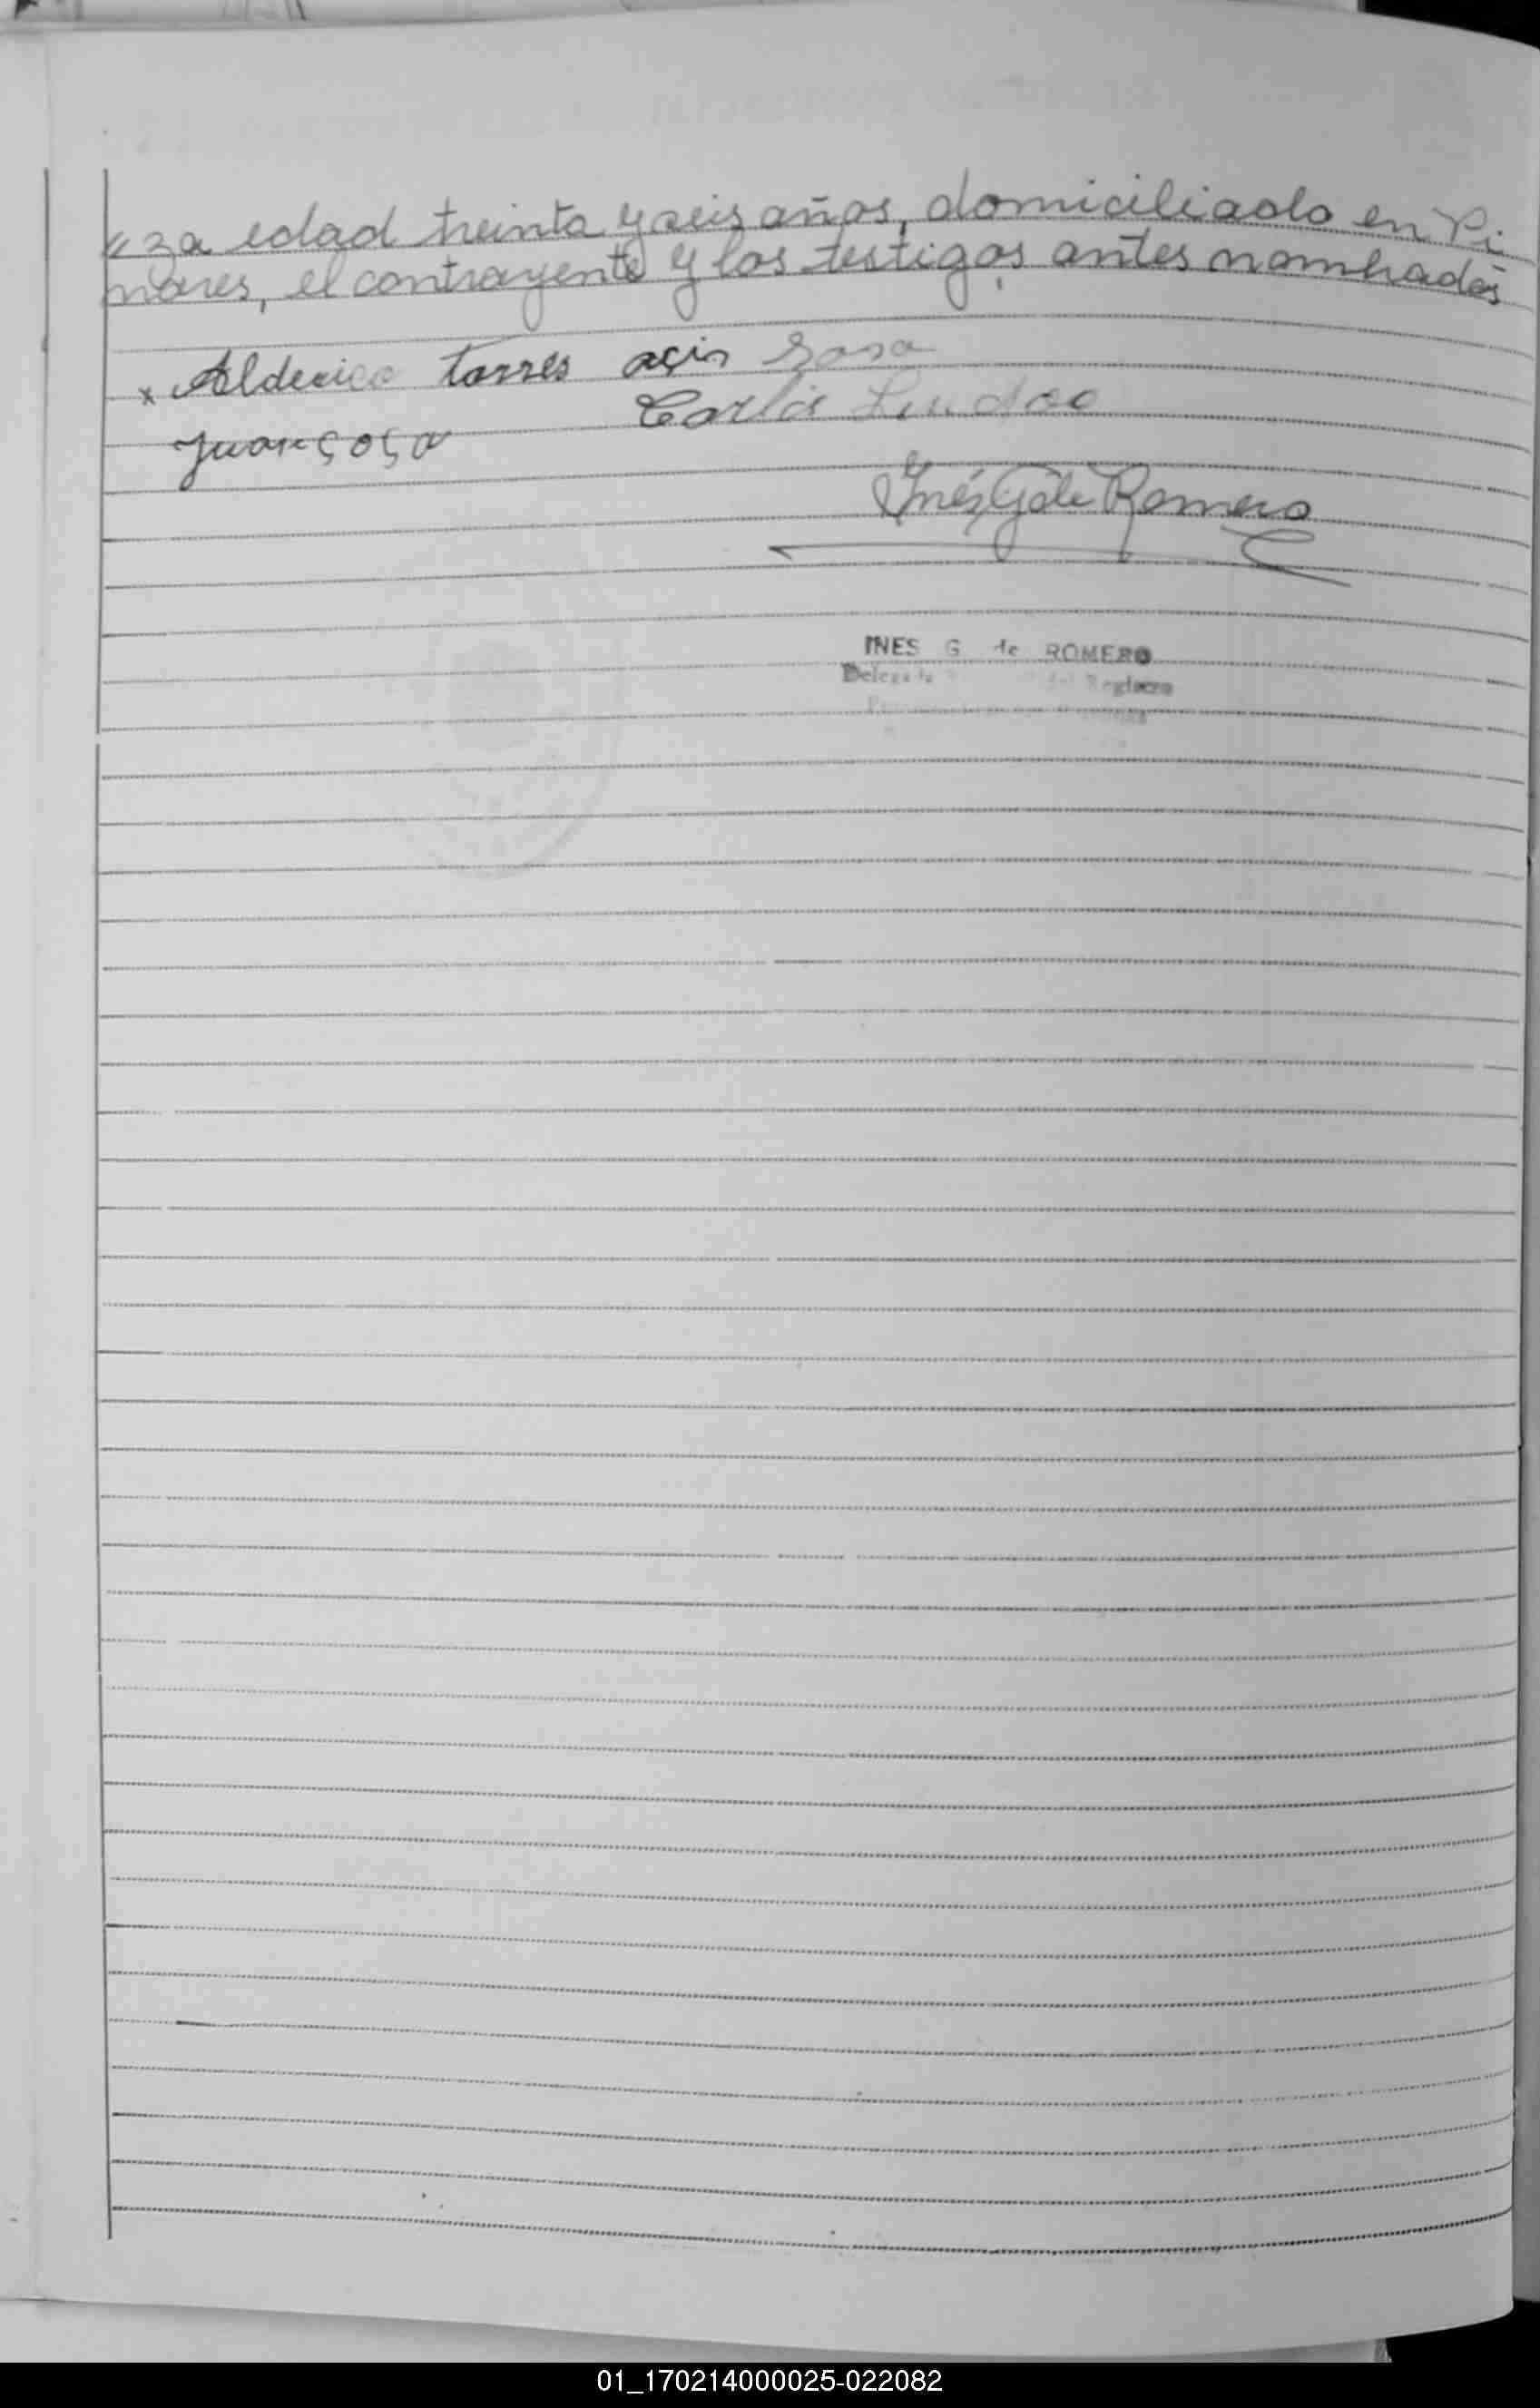 za edad treinta y seis años, domiciliado en Pi
nares, el contrayente y los testigos antes nombrados
x Alderico Torres asin Sosa
Carlos
Juan Sosa
Inés G de Romero
INES G de ROMERO
Delegada del Registro
01_170214000025-022082